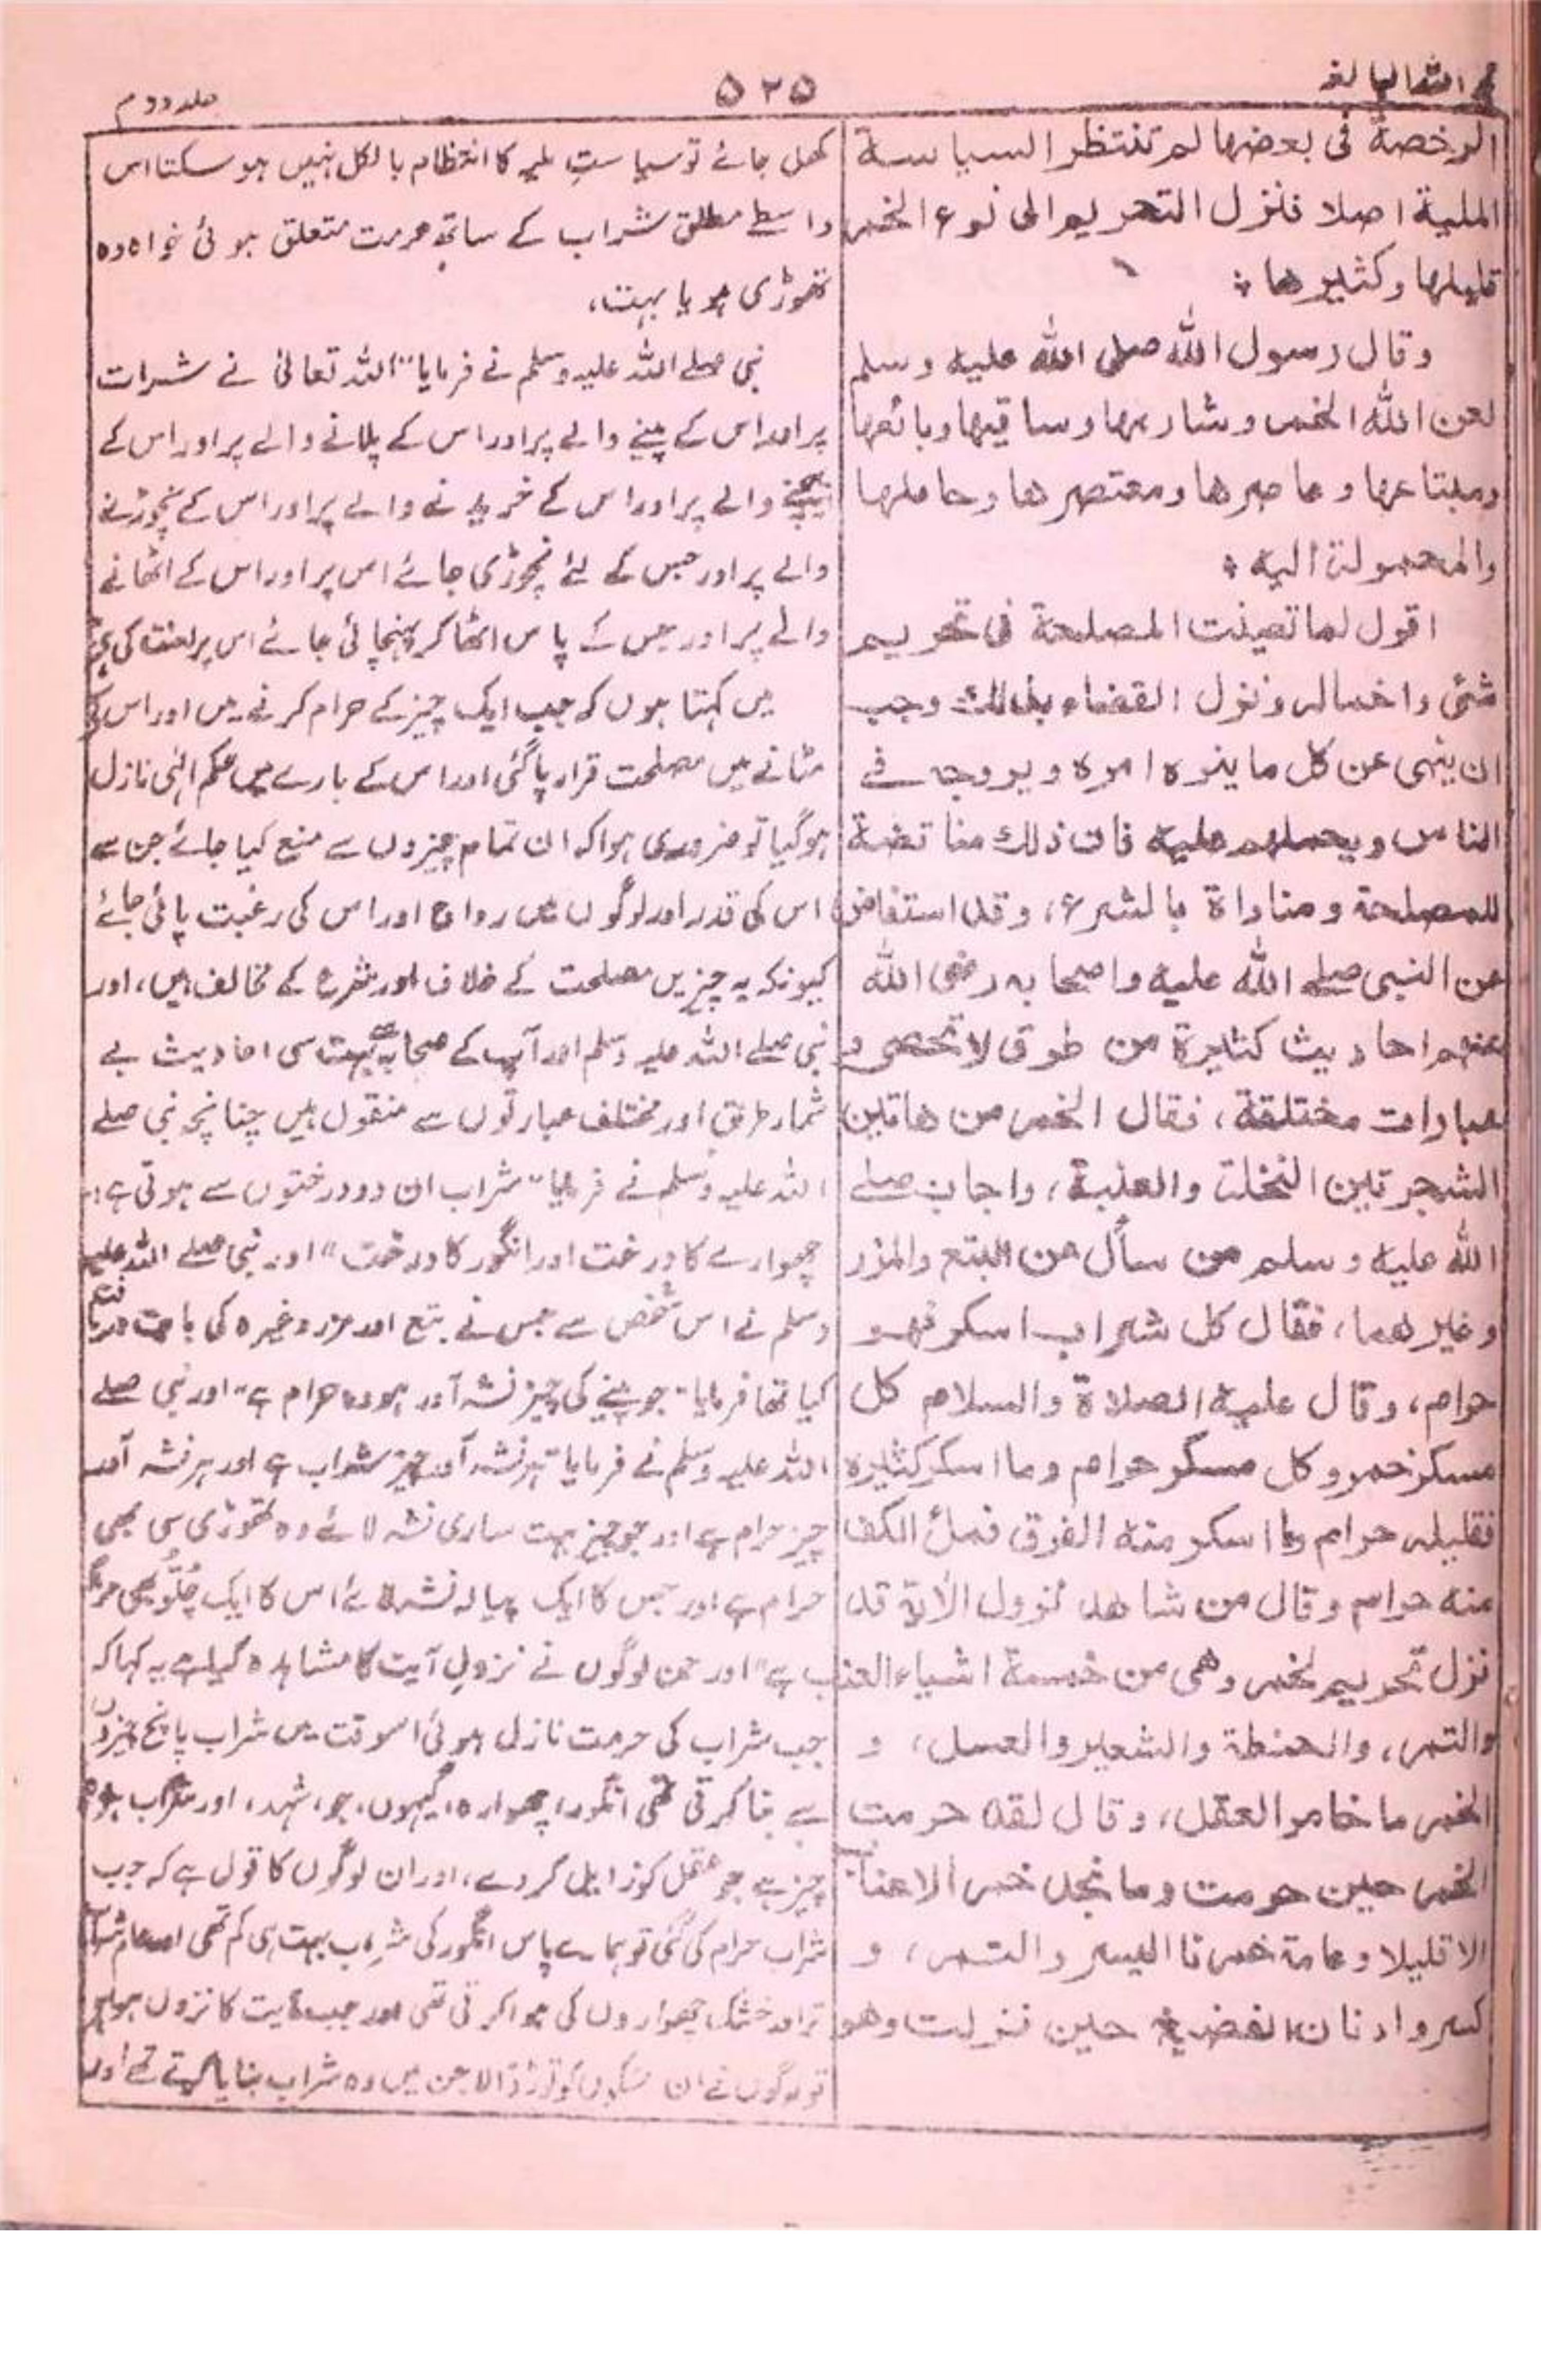 حجۃ اللہ البالغہ
۵۲۵
جلد دوم
الرخصة فى بعضها لم تنتظر السياسة
الملية اصلا فنزل التحريم الى نوع الخمر
قليلها وكثيرها ؛
وقال رسول الله صلى الله عليه وسلم
لعن الله الخمر وشاربها وساقيها وبائعها
ومبتاعها وعاصرها ومعتصرها وحاملها
والمحمولة اليه ؛
اقول لما تعينت المصلحة فى تحريم
شئى واخماله ونزل القضاء بذلك وجب
ان ينهى عن كل ما ينوه امره ويروجه فے
الناس ويحملهم عليه فان ذلك مناقضة
للمصلحة ومناداة بالشرع، وقد استفاض
عن النبى صلے الله عليه واصحابه رضى الله
عنهم احاديث كثيرة من طرق لا تحصى و
عبارات مختلفة، فقال الخمر من هاتين
الشجرتين النخلة والعنبة، واجاب صلے
الله عليه وسلم من سأل عن البتع والمزر
وغيرهما، فقال كل شراب اسكر فهو
حرام، وقال عليه الصلاة والسلام كل
مسكر خمر وكل مسكر حرام وما اسكر كثيره
فقليله حرام وما اسكر منه الفرق فملأ الكف
منه حرام وقال من شاهد نزول الآية قد
نزل تحريم الخمر وهى من خمسة اشياء العنب
والتمر، والحنطة والشعير والعسل، و
الخمر ما خامر العقل، وقال لقد حرمت
الخمر حين حرمت وما نجد خمر الاعناب
الا قليلا وعامة خمرنا البسر والتمر، و
كسروا دنان الفضيخ حين نزلت وهو
کھل جائے تو سیاستِ ملیہ کا انتظام بالکل نہیں ہو سکتا اس
واسطے مطلق شراب کے ساتھ حرمت متعلق ہوئی خواہ وہ
تھوڑی ہو یا بہت،
نبی صلے اللہ علیہ وسلم نے فرمایا "اللہ تعالیٰ نے شراب
پر اور اس کے پینے والے پر اور اس کے پلانے والے پر اور اس کے
بیچنے والے پر اور اس کے خریدنے والے پر اور اس کے نچوڑنے
والے پر اور جس کے لئے نچوڑی جائے اس پر اور اس کے اٹھانے
والے پر اور جس کے پاس اٹھا کر پہنچائی جائے اس پر لعنت کی ہے"
میں کہتا ہوں کہ جب ایک چیز کے حرام کرنے میں اور اس کے
مٹانے میں مصلحت قرار پا گئی اور اس کے بارے میں حکم الٰہی نازل
ہو گیا تو ضروری ہوا کہ ان تمام چیزوں سے منع کیا جائے جن سے
اس کی قدر اور لوگوں میں رواج اور اس کی رغبت پائی جائے
کیونکہ یہ چیزیں مصلحت کے خلاف اور شرع کے مخالف ہیں، اور
نبی صلے اللہ علیہ وسلم اور آپ کے صحابہ سے بہت سی احادیث بے
شمار طرق اور مختلف عبارتوں سے منقول ہیں چنانچہ نبی صلے
اللہ علیہ وسلم نے فرمایا "شراب ان دو درختوں سے ہوتی ہے:-
چھوارے کا درخت اور انگور کا درخت" اور نبی صلے اللہ علیہ
وسلم نے اس شخص سے جس نے بتع اور مزر وغیرہ کی بابت دریافت
کیا تھا فرمایا "جو پینے کی چیز نشہ آور ہو وہ حرام ہے" اور نبی صلے
اللہ علیہ وسلم نے فرمایا "ہر نشہ آور چیز شراب ہے اور ہر نشہ آور
چیز حرام ہے اور جو چیز بہت ساری نشہ لائے وہ تھوڑی سی بھی
حرام ہے اور جس کا ایک پیالہ نشہ لائے اس کا ایک چُلّو بھی حرام
ہے" اور جن لوگوں نے نزولِ آیت کا مشاہدہ کیا ہے یہ کہا کہ
جب شراب کی حرمت نازل ہوئی اسوقت میں شراب پانچ چیزوں
سے بنا کرتی تھی انگور، چھوارہ، گیہوں، جو، شہد، اور شراب وہ
چیز ہے جو عقل کو زایل کر دے، اور ان لوگوں کا قول ہے کہ جب
شراب حرام کی گئی تو ہمارے پاس انگور کی شراب بہت ہی کم تھی اور عام شراب
تر اور خشک چھواروں کی ہوا کرتی تھی اور جب آیت کا نزول ہوا ہے
تو لوگوں نے ان مٹکوں کو توڑ ڈالا جن میں وہ شراب بنایا کرتے تھے اور